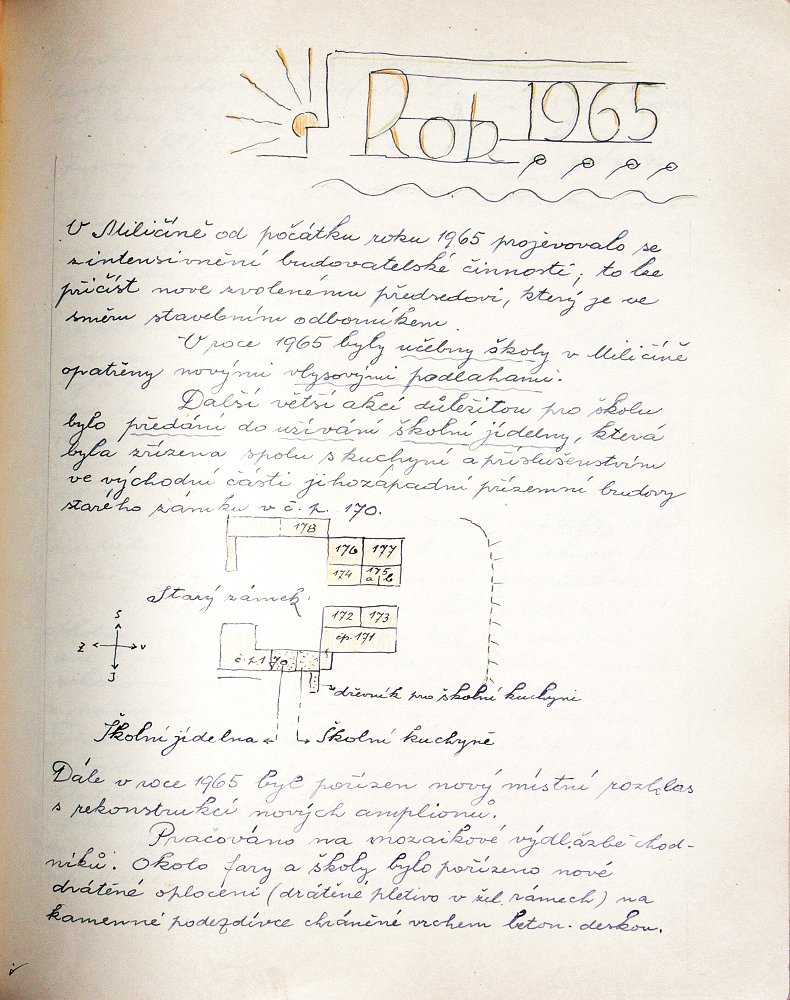 Rok 1965
V Miličíně od počátku roku 1965 projevovalo se
zintensivnění budovatelské činnosti, to lze
přičíst nově zvolenému předsedovi, který je ve
směru stavebním odborníkem.
V roce 1965 byly učebny školy v Miličíně
opatřeny novými vlysovými podlahami.
Další větší akcí důležitou pro školu
bylo předání do užívání školní jídelny, která
byla zřízena spolu s kuchyní a příslušenstvím
ve východní části jihozápadní přízemní budovy
starého zámku v č. p. 170.
178
176 177
174 175 a b
Starý zámek.
172 173
čp. 171
č. p. 170
S
Z V
J
dřevník pro školní kuchyni
Školní jídelna Školní kuchyně
Dále v roce 1965 byl pořízen nový místní rozhlas
s rekonstrukcí nových amplionů.
Pracováno na mozaikové výdlažbě chod-
níků. Okolo fary a školy bylo pořízeno nové
drátěné oplocení (drátěné pletivo v žel. rámech) na
kamenné podezdívce chráněné vrchem beton. deskou.